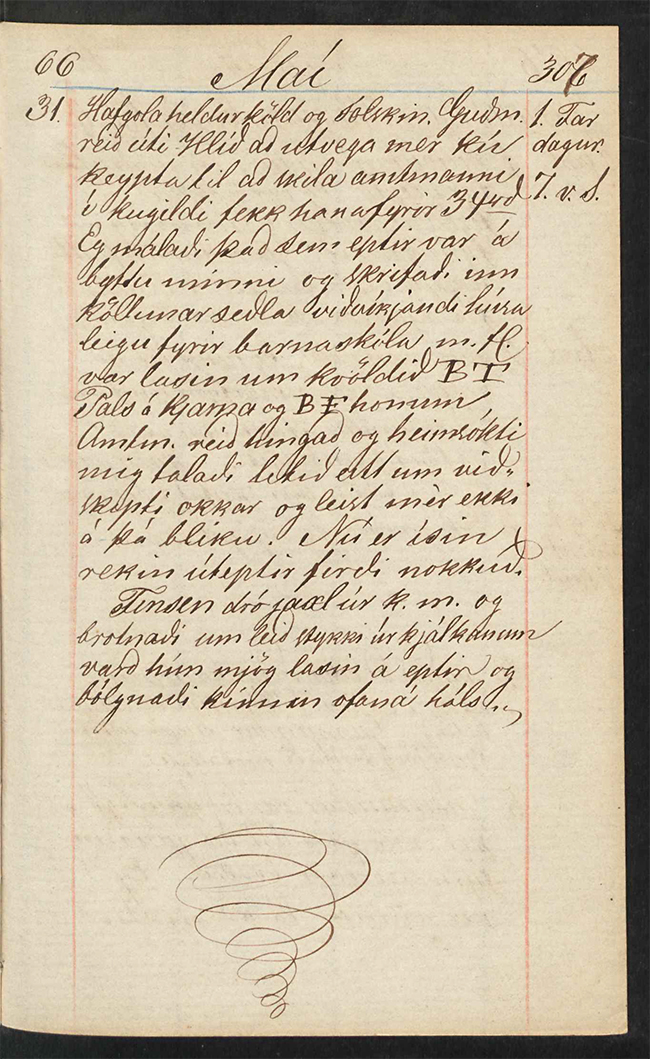 66 Maí 307
31. Hafgola heldur köld og solskin. Guðm. 1. Far
reið úti Hlíð að utvega mer kú dagur.
keypta til að skila amtmanni 7. v. S.
í kugildi fekk hana fyrir 34rd
Eg málaði það sem eptir var á
byttu minni og skrifaði inn
köllunarseðla viðvikjandi húsa
leigu fyrir barnaskóla m. fl.
var lasin um kvöldið BT
Pals á Kjarna og BF honum
Amtm. reið hingað og heimsókti
mig talaði letið eitt um við-
skipti okkar og leist mèr ekki
á þá bliku. Nú er ísin
rekin úteptir firði nokkuð.
Finsen dró jaxl úr k. m. og
brotnaði um leið stykki úr kjálkanum
varð hún mjög lasin á eptir og
bólgnaði kinnin ofaná háls.